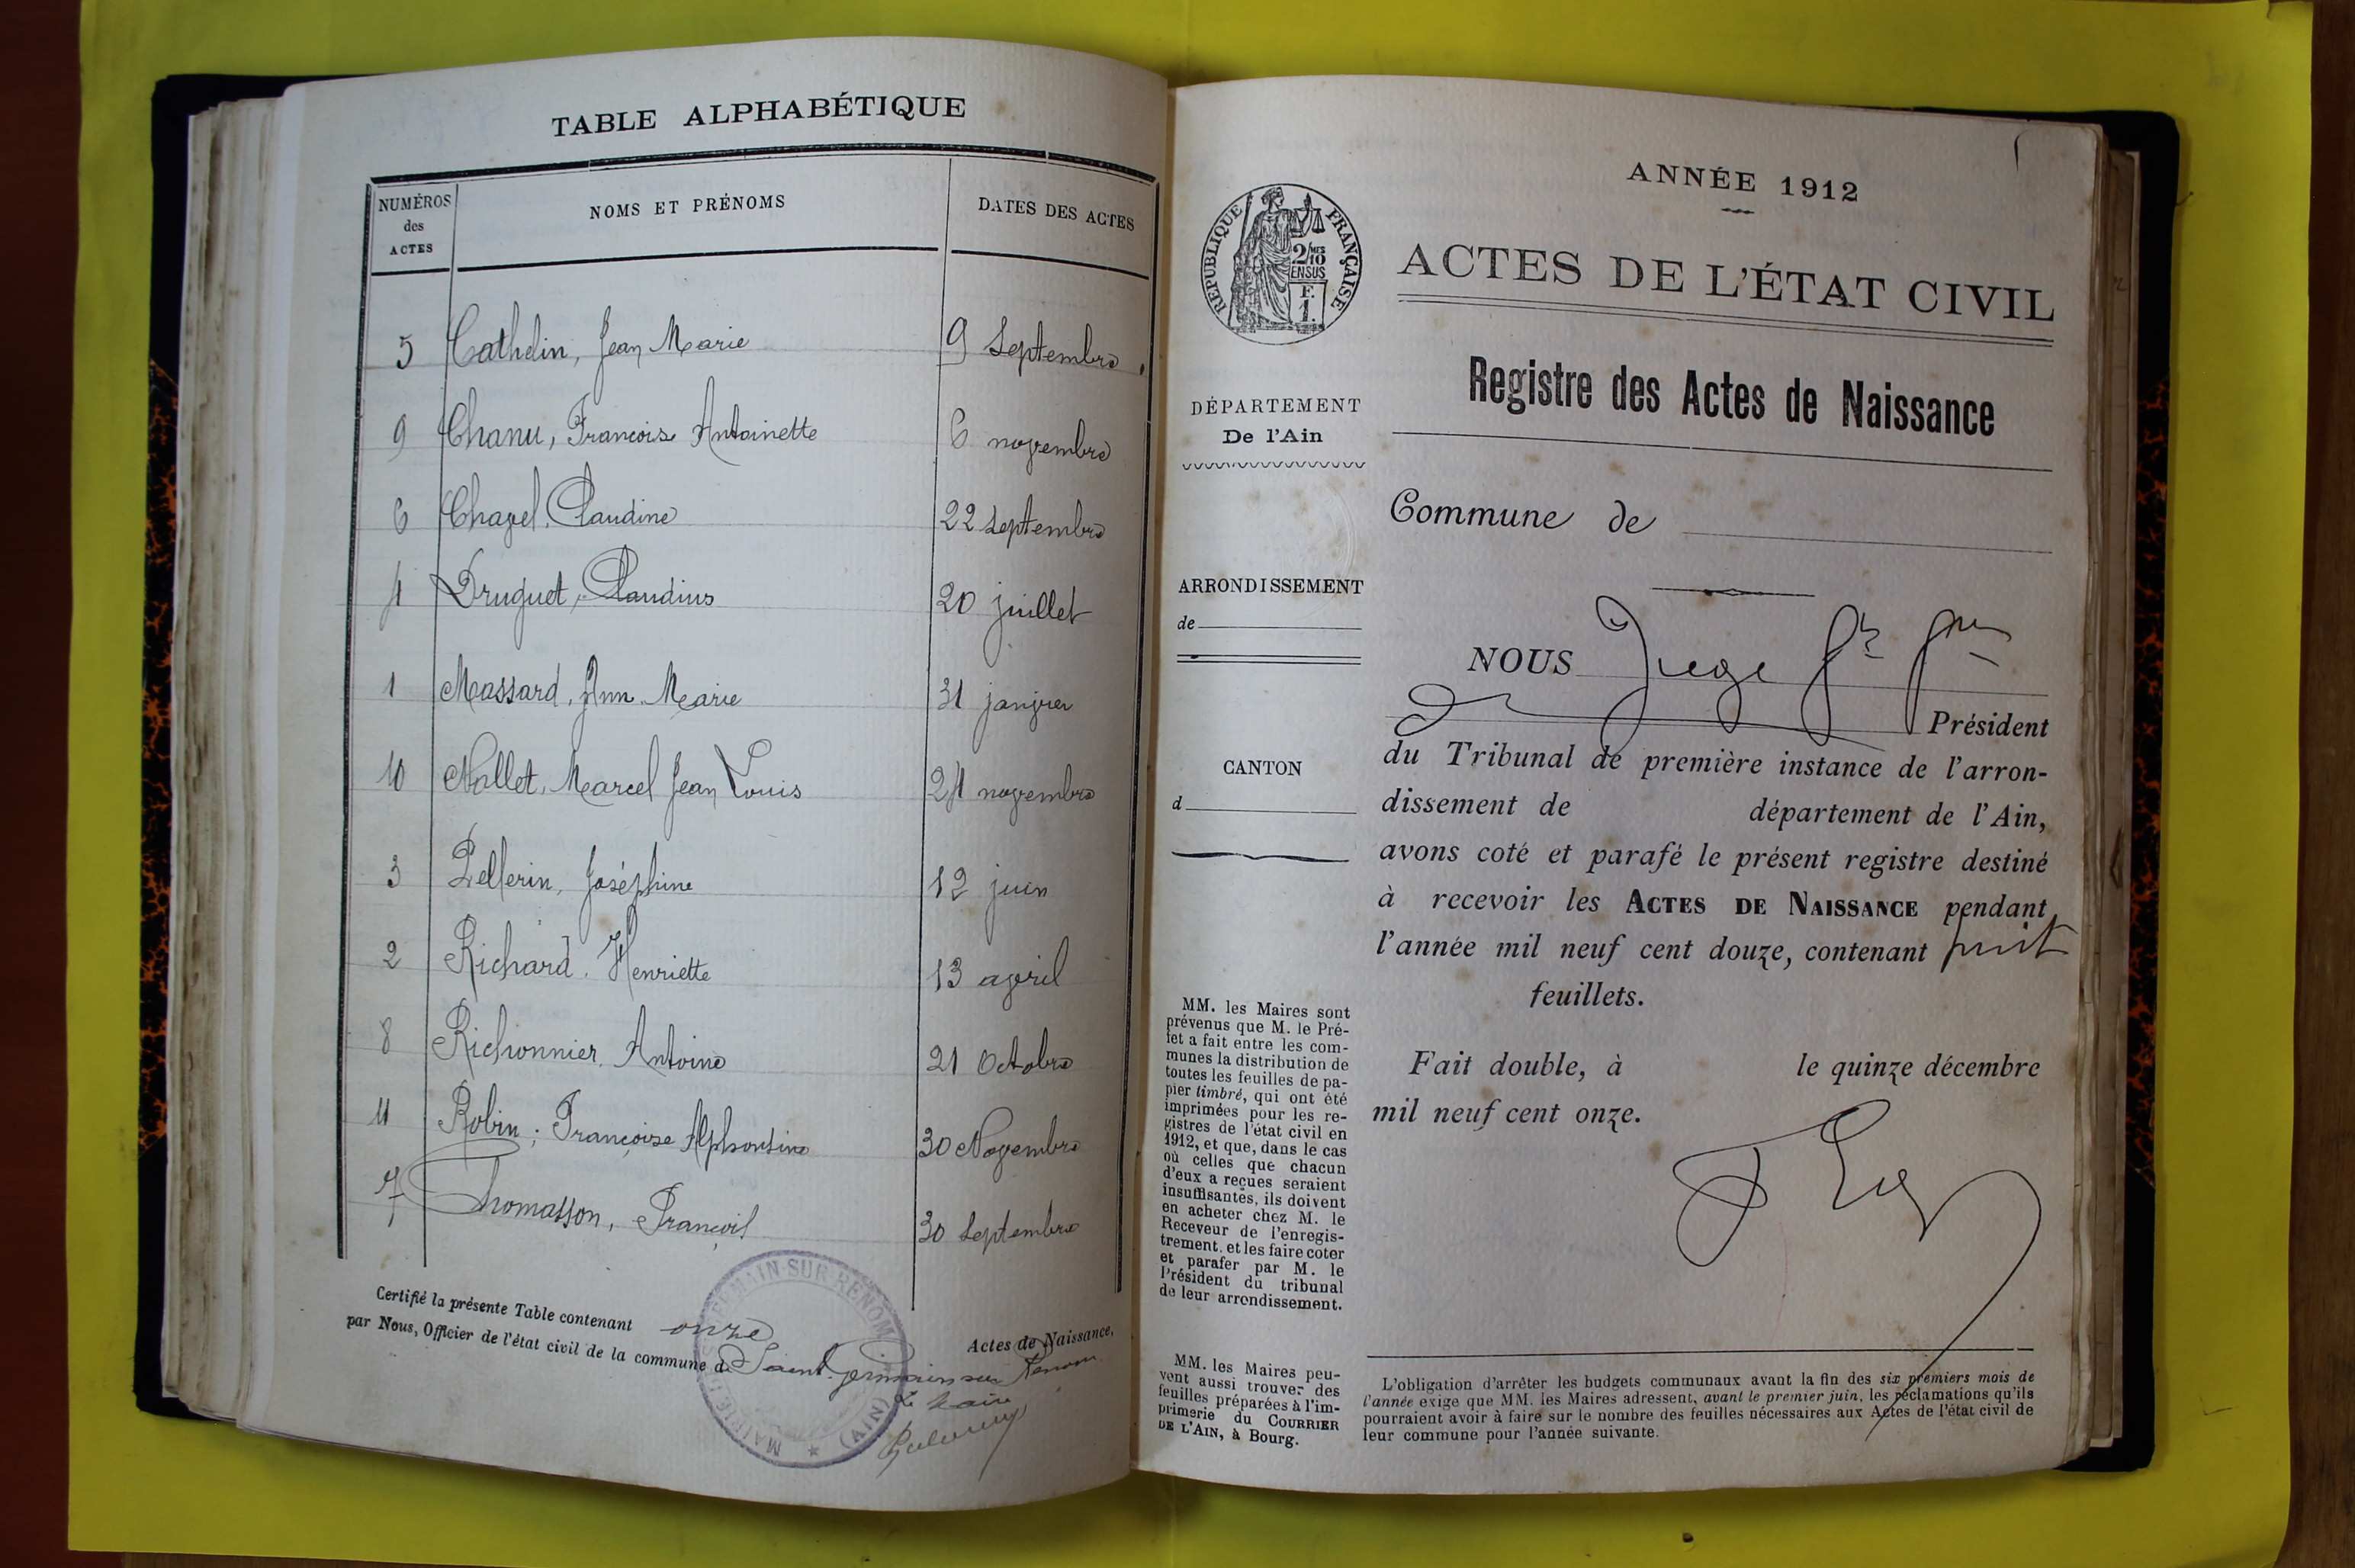 TABLE ALPHABÉTIQUE
NUMÉROS
des
ACTES
NOMS ET PRÉNOMS
DATES DES ACTES
5 Cathelin, Jean Marie 9 Septembre
9 Chanu, Francoise Antoinette 6 novembre
6 Chavel, Claudine 22 septembre
4 Druguet, Claudius 20 juillet
1 Massard, Ann Marie 31 janvier
10 Nallet, Marcel Jean Louis 24 novembre
3 Pellerin, Joséphine 12 juin
2 Richard, Henriette 13 avril
8 Richonnier, Antoine 21 Octobre
11 Robin, Françoise Alphonsine 30 Novembre
7 Thomasson, François 30 septembre
Certifié la présente Table contenant onze Actes de Naissance,
par Nous, Officier de l'état civil de la commune de Saint germain sur Renom
Le Maire
ANNÉE 1912
RÉPUBLIQUE FRANÇAISE
2/10
EN SUS
F.
1.
ACTES DE L'ÉTAT CIVIL
Registre des Actes de Naissance
DÉPARTEMENT
De l'Ain
Commune de
ARRONDISSEMENT
de
CANTON
d
NOUS Juge
Président
du Tribunal de première instance de l'arron-
dissement de département de l'Ain,
avons coté et parafé le présent registre destiné
à recevoir les ACTES DE NAISSANCE pendant
l'année mil neuf cent douze, contenant huit
feuillets.
Fait double, à le quinze décembre
mil neuf cent onze.
MM. les Maires sont
prévenus que M. le Pré-
fet a fait entre les com-
munes la distribution de
toutes les feuilles de pa-
pier timbré, qui ont été
imprimées pour les re-
gistres de l'état civil en
1912, et que, dans le cas
où celles que chacun
d'eux a reçues seraient
insuffisantes, ils doivent
en acheter chez M. le
Receveur de l'enregis-
trement, et les faire coter
et parafer par M. le
Président du tribunal
de leur arrondissement.
MM. les Maires peu-
vent aussi trouver des
feuilles préparées à l'im-
primerie du COURRIER
DE L'AIN, à Bourg.
L'obligation d'arrêter les budgets communaux avant la fin des six premiers mois de
l'année exige que MM. les Maires adressent, avant le premier juin, les réclamations qu'ils
pourraient avoir à faire sur le nombre des feuilles nécessaires aux Actes de l'état civil de
leur commune pour l'année suivante.